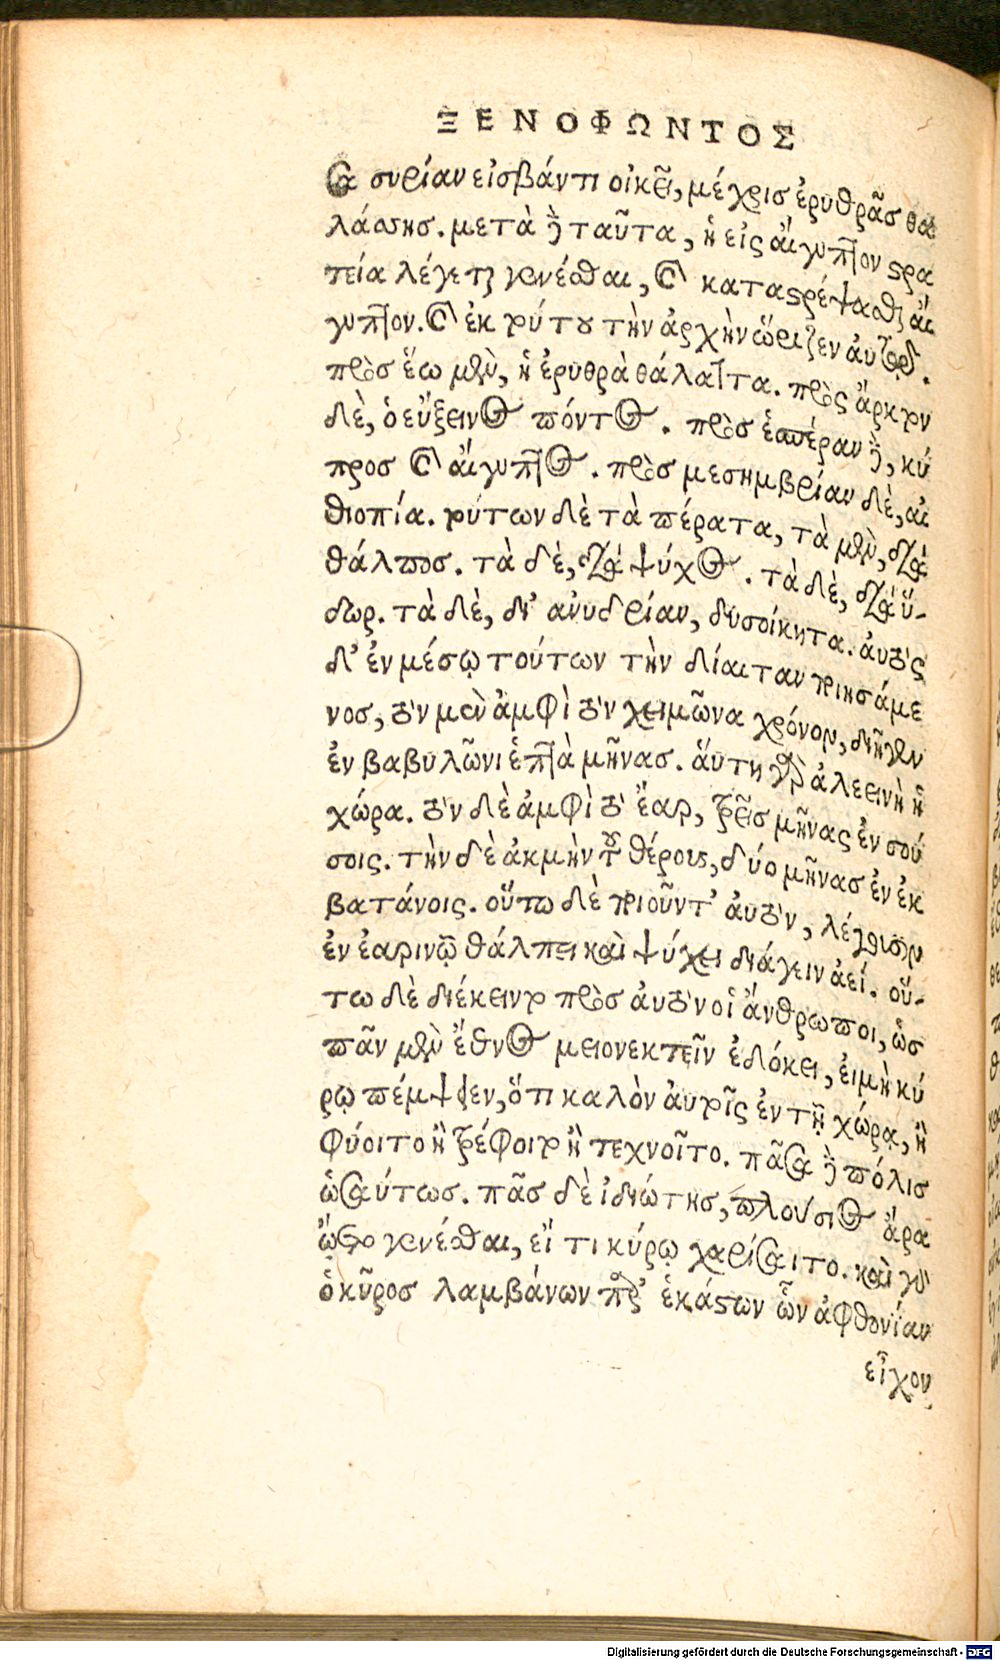 ΞΕΝΟΦΩΝΤΟΣ
σα συρίαν εἰσβάντι οἰκεῖ, μέχρις ἐρυθρᾶς θα
λάσσης. μετὰ δὲ ταῦτα, ἡ εἰς αἴγυπτον στρα
τεία λέγεται γενέσθαι, καὶ καταστρέψασθαι αἴ
γυπτον. καὶ ἐκ τούτου τὴν ἀρχὴν ὥριζεν αὐτῷ.
πρὸς ἕω μὲν, ἡ ἐρυθρὰ θάλαττα. πρὸς ἄρκτον
δὲ, ὁ εὔξεινος πόντος. πρὸς ἑσπέραν δὲ, κύ
προς καὶ αἴγυπτος. πρὸς μεσημβρίαν δὲ, αἰ
θιοπία. τούτων δὲ τὰ πέρατα, τὰ μὲν, διὰ
θάλπος. τὰ δὲ, διὰ ψύχος. τὰ δὲ, διὰ ὕ-
δωρ. τὰ δὲ, δι' ἀνυδρίαν, δυσοίκητα. αὐτὸς
δ' ἐν μέσῳ τούτων τὴν δίαιταν ποιησάμε
νος, τὸν μὲν ἀμφὶ τὸν χειμῶνα χρόνον, διῆγεν
ἐν βαβυλῶνι ἑπτὰ μῆνας. αὕτη γὰρ ἀλεεινὴ ἡ
χώρα. τὸν δὲ ἀμφὶ τὸ ἔαρ, τρεῖς μῆνας ἐν σού
σοις. τὴν δὲ ἀκμὴν τοῦ θέρους, δύο μῆνας ἐν ἐκ
βατάνοις. οὕτω δὲ ποιοῦντ' αὐτὸν, λέγουσιν
ἐν ἐαρινῷ θάλπει καὶ ψύχει διάγειν ἀεί. οὕ-
τω δὲ διέκειντο πρὸς αὐτὸν οἱ ἄνθρωποι, ὡς
πᾶν μὲν ἔθνος μειονεκτεῖν ἐδόκει, εἰ μὴ κύ
ρῳ πέμψειεν, ὅτι καλὸν αὐτοῖς ἐν τῇ χώρᾳ, ἢ
φύοιτο ἢ τρέφοιτο ἢ τεχνοῖτο. πᾶσα δὲ πόλις
ὡσαύτως. πᾶς δὲ ἰδιώτης, πλούσιος ἄρα
ᾤετο γενέσθαι, εἴ τι κύρῳ χαρίσαιτο. καὶ γὰρ
ὁ κῦρος λαμβάνων παρ' ἑκάστων ὧν ἀφθονίαν
εἶχον
Digitalisierung gefördert durch die Deutsche Forschungsgemeinschaft - DFG